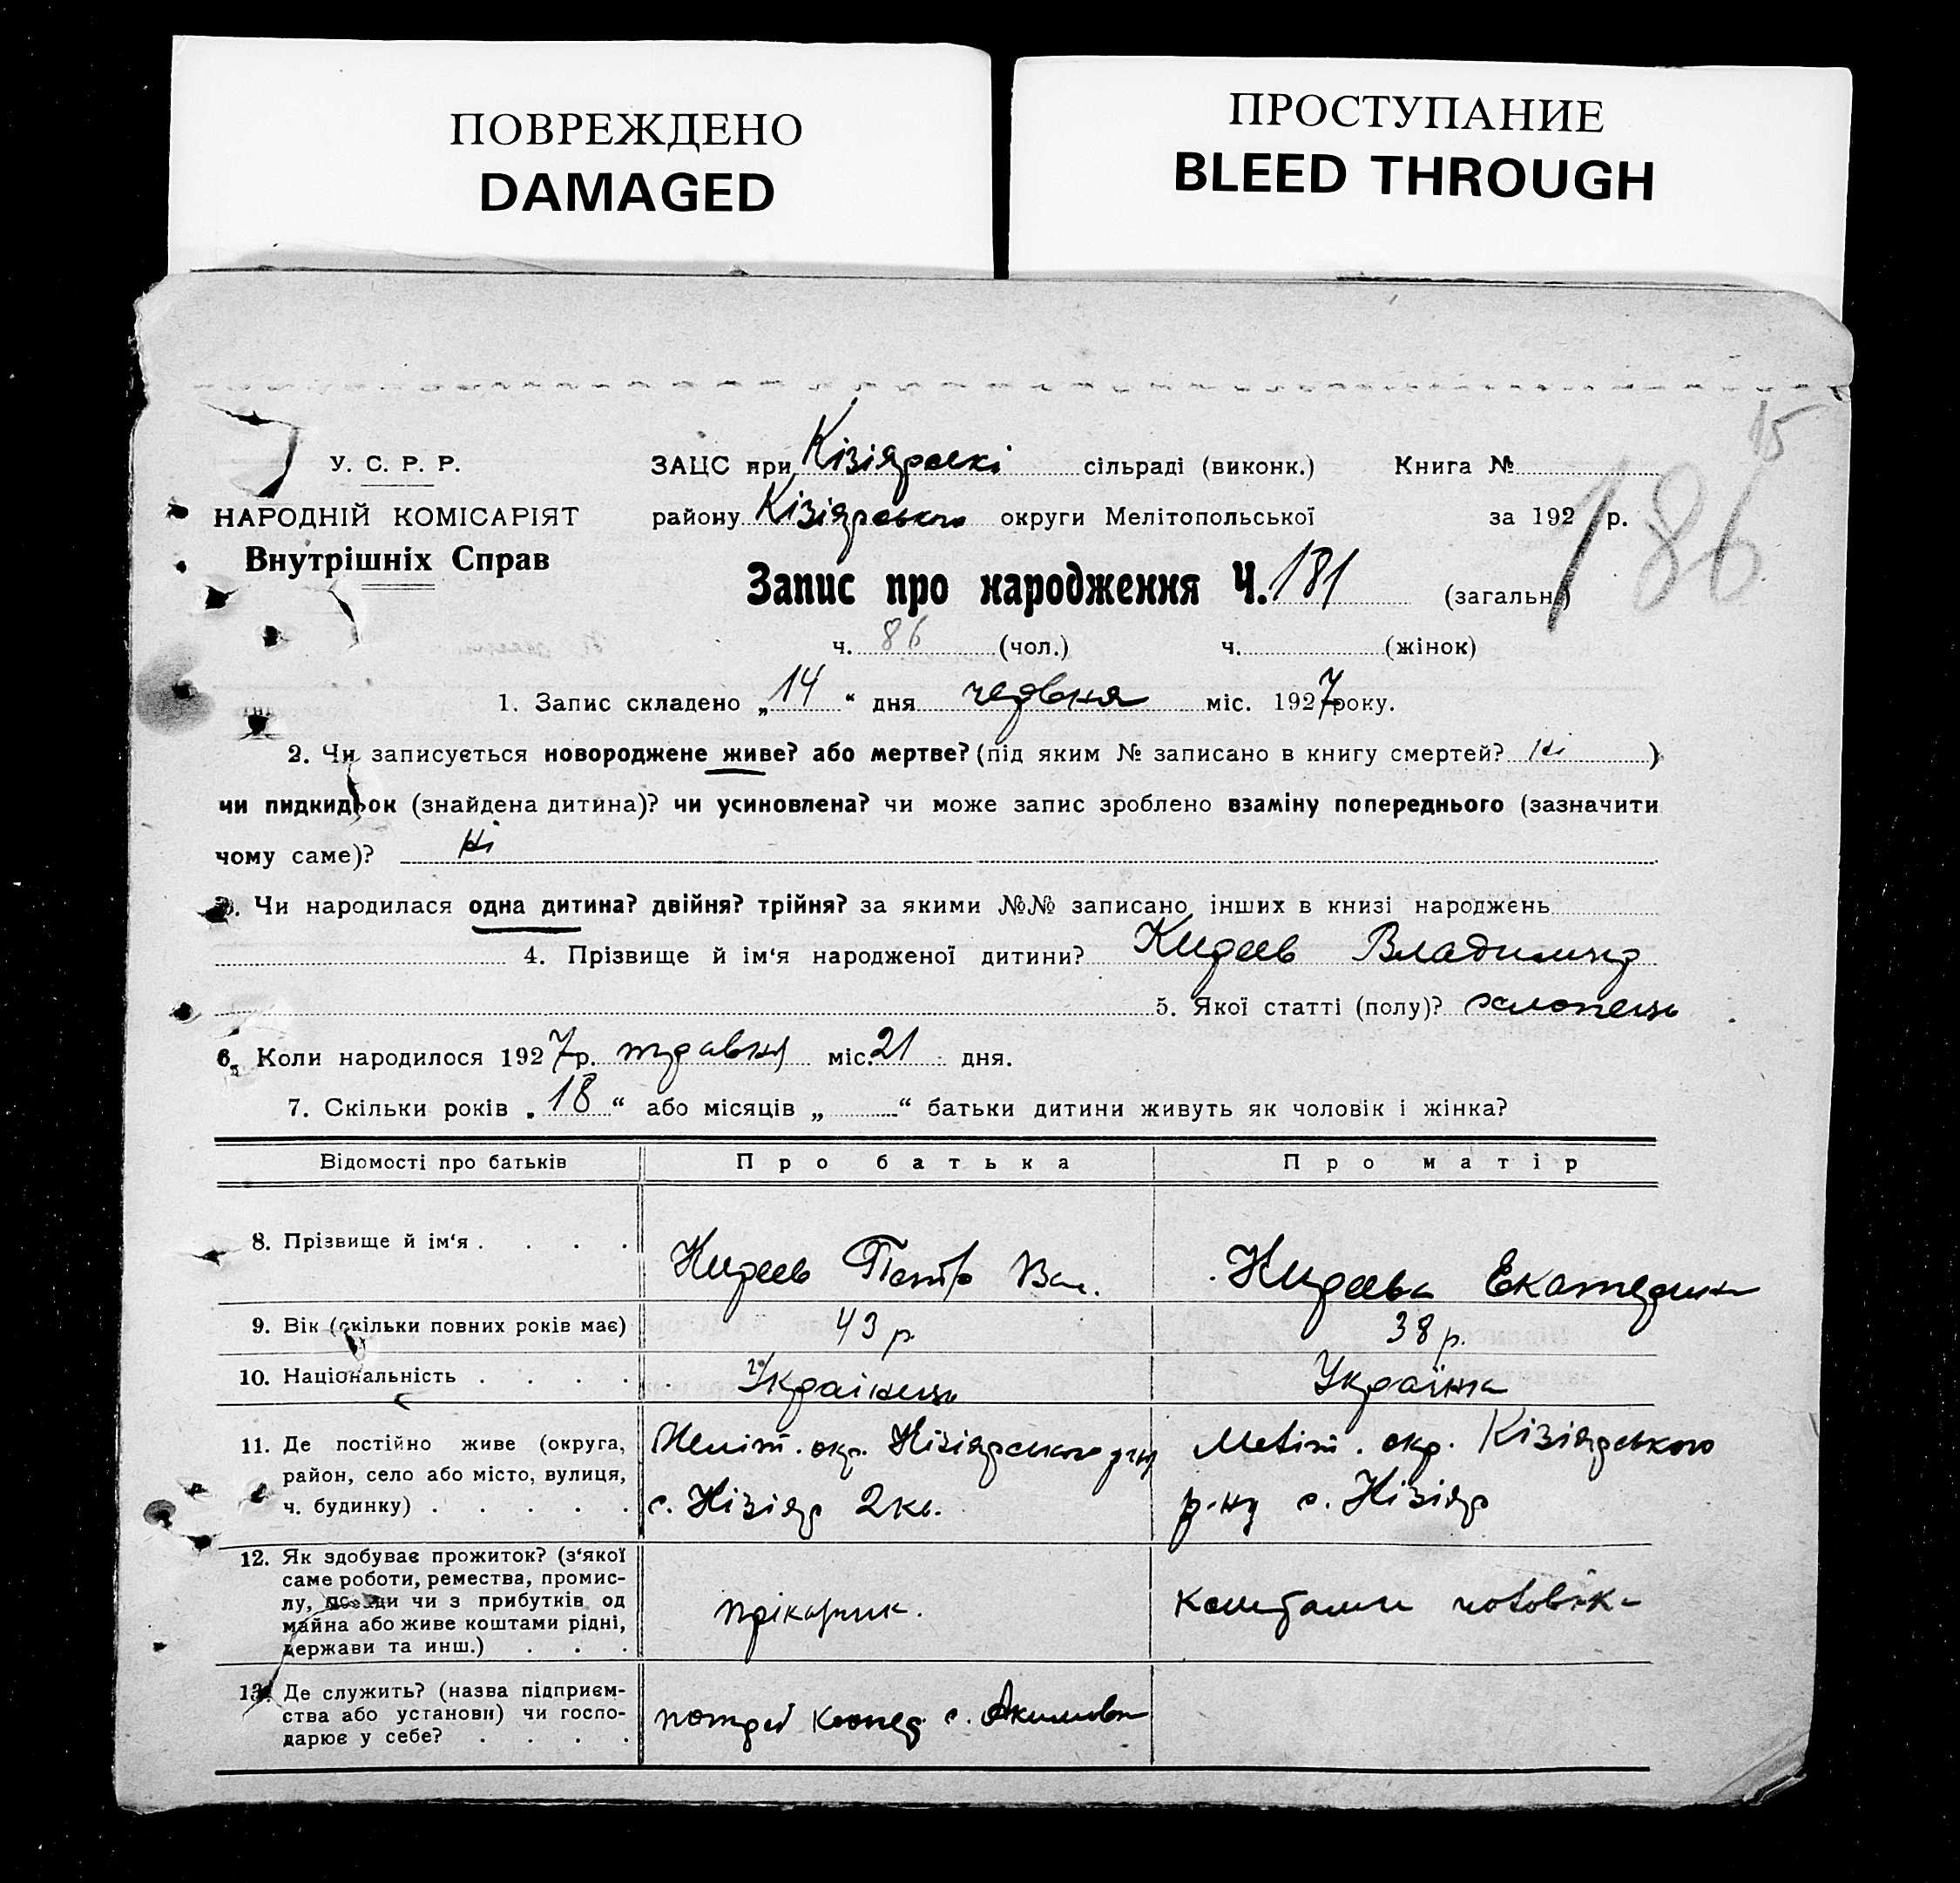 ПОВРЕЖДЕНО
DAMAGED
ПРОСТУПАНИЕ
BLEED THROUGH
15
186
У. С. Р. Р.
НАРОДНІЙ КОМІСАРІЯТ
Внутрішніх Справ
ЗАЦС при Кізіярскі сільраді (виконк.) Книга №
району Кізіярського округи Мелітопольської за 192 р.
Запис про народження Ч. 181 (загальн.)
ч. 86 (чол.) ч. (жінок)
1. Запис складено „14“ дня червня міс. 1927 року.
2. Чи записується новороджене живе? або мертве? (під яким № записано в книгу смертей? Ні)
чи пидкидьок (знайдена дитина)? чи усиновлена? чи може запис зроблено взаміну попереднього (зазначити
чому саме)? Ні
3. Чи народилася одна дитина? двійня? трійня? за якими №№ записано інших в книзі народжень
4. Прізвище й ім‘я народженої дитини? Киреев Владимир
5. Якої статті (полу)? хлопець
6. Коли народилося 1927 р. травня міс. 21 дня.
7. Скільки років „18“ або місяців „ “ батьки дитини живуть як чоловік і жінка?
Відомості про батьків Про батька Про матір
8. Прізвище й ім‘я . . . . Киреев Петр Вас. Киреева Екатерина
9. Вік (скільки повних років має) 43 р. 38 р.
10. Національність . . . . Українець Українка
11. Де постійно живе (округа, район, село або місто, вулиця, ч. будинку) . . . . .
Меліт. окр. Кізіярського р-ну
с. Кізіяр 2 кв.
Меліт. окр. Кізіярського
р-ну с. Кізіяр
12. Як здобуває прожиток? (з‘якої
саме роботи, ремества, промис-
лу, посади чи з прибутків од
майна або живе коштами рідні,
держави та инш.) . . .
прікащик.
коштами чоловіка
13. Де служить? (назва підприєм-
ства або установи) чи госпо-
дарює у себе? . . . .
потреб коопер с. Акимовка